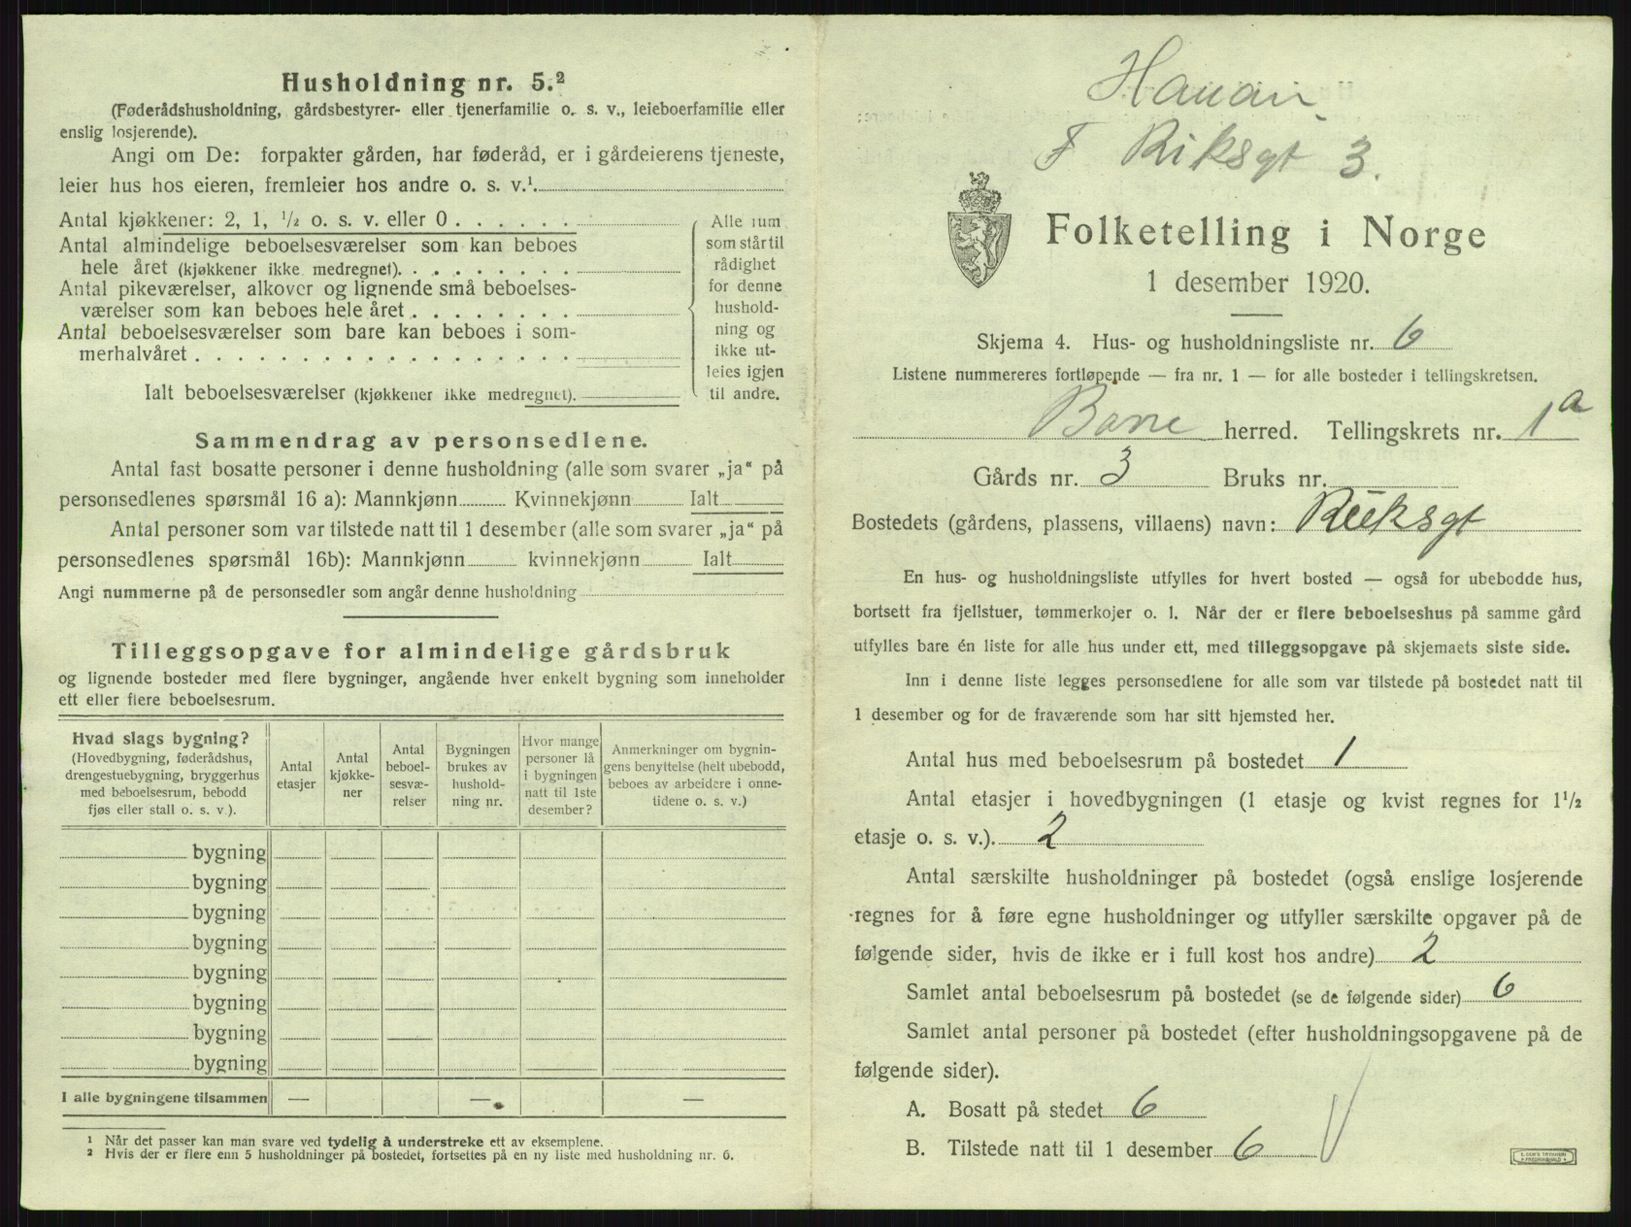 Husholdning nr. 5.²
(Føderådshusholdning, gårdsbestyrer- eller tjenerfamilie o. s. v., leieboerfamilie eller
enslig losjerende).
Angi om De: forpakter gården, har føderåd, er i gårdeierens tjeneste,
leier hus hos eieren, fremleier hos andre o. s. v.¹
Antal kjøkkener: 2, 1, ½ o. s. v. eller 0 . . . . . .
Antal almindelige beboelsesværelser som kan beboes
hele året (kjøkkener ikke medregnet). . . . . . . . .
Antal pikeværelser, alkover og lignende små beboelses-
værelser som kan beboes hele året . . . . . . . .
Antal beboelsesværelser som bare kan beboes i som-
merhalvåret . . . . . . . . . . . . . . . . . .
Ialt beboelsesværelser (kjøkkener ikke medregnet).
Alle rum
som står til
rådighet
for denne
hushold-
ning og
ikke ut-
leies igjen
til andre.
Sammendrag av personsedlene.
Antal fast bosatte personer i denne husholdning (alle som svarer „ja“ på
personsedlenes spørsmål 16 a): Mannkjønn Kvinnekjønn Ialt
Antal personer som var tilstede natt til 1 desember (alle som svarer „ja“ på
personsedlenes spørsmål 16b): Mannkjønn kvinnekjønn Ialt
Angi nummerne på de personsedler som angår denne husholdning
Tilleggsopgave for almindelige gårdsbruk
og lignende bosteder med flere bygninger, angående hver enkelt bygning som inneholder
ett eller flere beboelsesrum.
Hvad slags bygning?
(Hovedbygning, føderådshus,
drengestuebygning, bryggerhus
med beboelsesrum, bebodd
fjøs eller stall o. s. v.).
Antal
etasjer
Antal
kjøkke-
ner
Antal
beboel-
sesvæ-
relser
Bygningen
brukes av
hushold-
ning nr.
Hvor mange
personer lå
i bygningen
natt til 1ste
desember?
Anmerkninger om bygnin-
gens benyttelse (helt ubebodd,
beboes av arbeidere i onne-
tidene o. s. v.)
bygning
bygning
bygning
bygning
bygning
bygning
bygning
bygning
I alle bygningene tilsammen — — —
¹ Når det passer kan man svare ved tydelig å understreke ett av eksemplene.
² Hvis der er flere enn 5 husholdninger på bostedet, fortsettes på en ny liste med husholdning nr. 6.
Riksgt 3.
Folketelling i Norge
1 desember 1920.
Skjema 4. Hus- og husholdningsliste nr. 6
Listene nummereres fortløpende — fra nr. 1 — for alle bosteder i tellingskretsen.
Borre herred. Tellingskrets nr. 1a
Gårds nr. 3 Bruks nr.
Bostedets (gårdens, plassens, villaens) navn: Riiksgt
En hus- og husholdningsliste utfylles for hvert bosted — også for ubebodde hus,
bortsett fra fjellstuer, tømmerkojer o. l. Når der er flere beboelseshus på samme gård
utfylles bare én liste for alle hus under ett, med tilleggsopgave på skjemaets siste side.
Inn i denne liste legges personsedlene for alle som var tilstede på bostedet natt til
1 desember og for de fraværende som har sitt hjemsted her.
Antal hus med beboelsesrum på bostedet 1
Antal etasjer i hovedbygningen (1 etasje og kvist regnes for 1½
etasje o. s. v.). 2
Antal særskilte husholdninger på bostedet (også enslige losjerende
regnes for å føre egne husholdninger og utfyller særskilte opgaver på de
følgende sider, hvis de ikke er i full kost hos andre) 2
Samlet antal beboelsesrum på bostedet (se de følgende sider) 6
Samlet antal personer på bostedet (efter husholdningsopgavene på de
følgende sider).
A. Bosatt på stedet 6
B. Tilstede natt til 1 desember 6